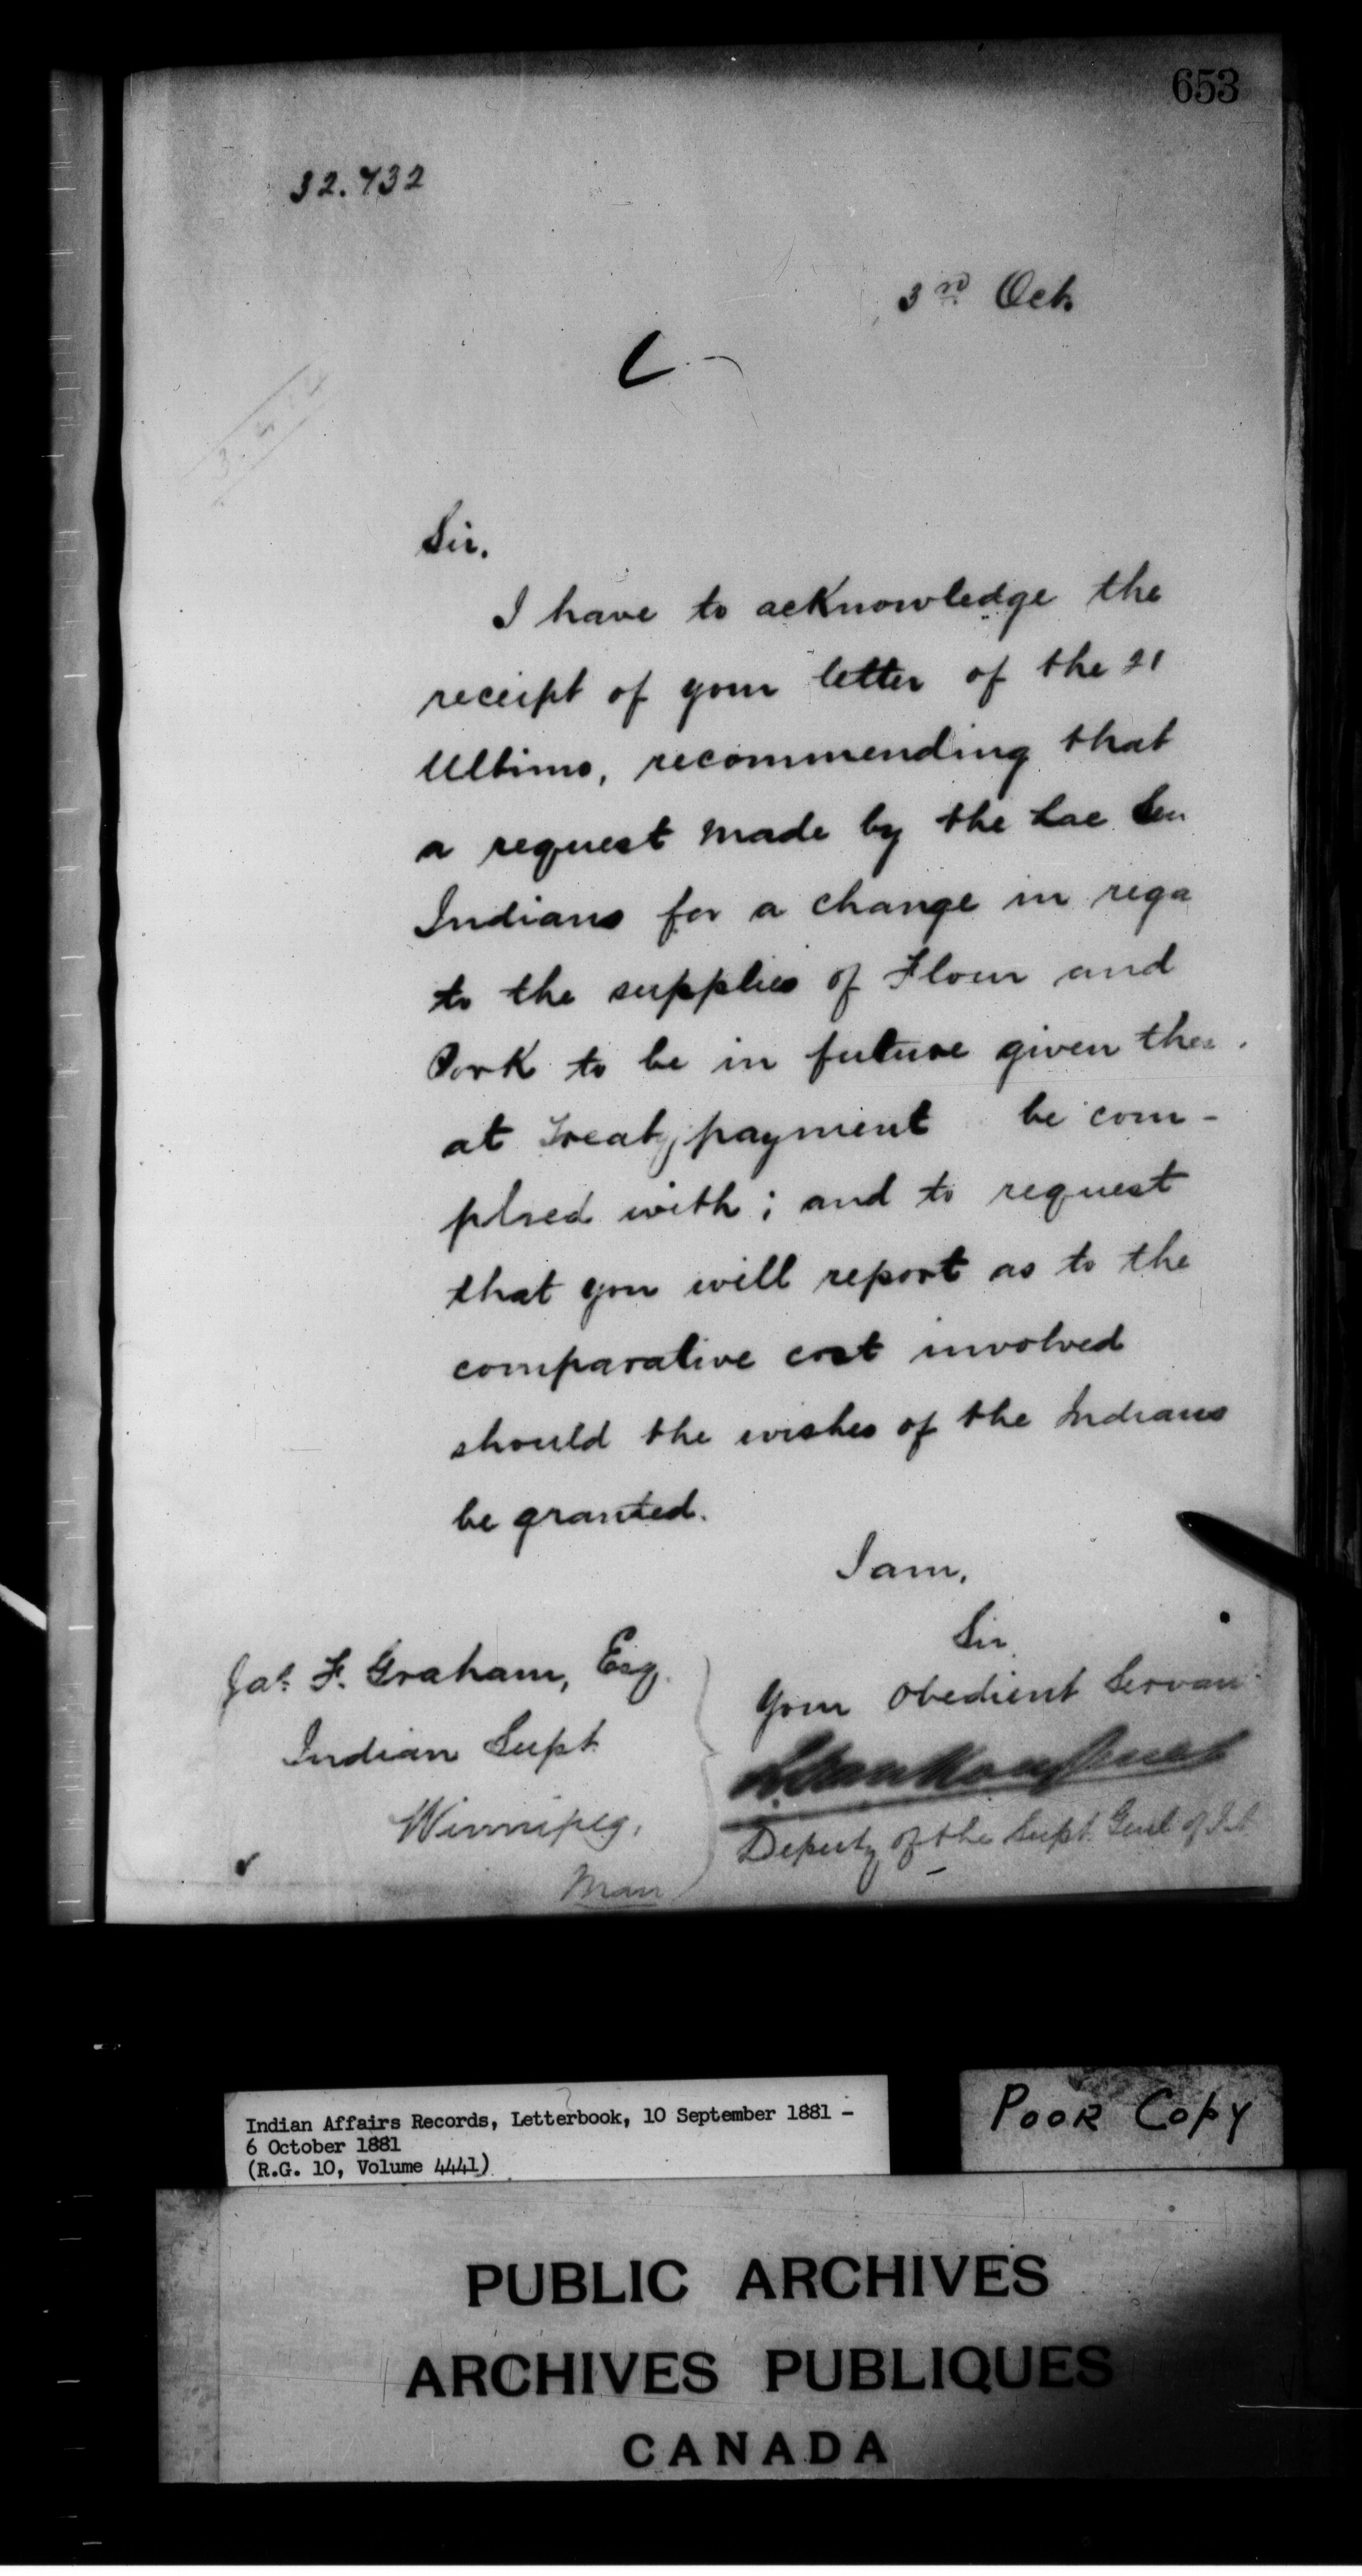 653
32.732
3rd Oct.
Sir.
I have to acknowledge the
receipt of your letter of the 21
Ultimo, recommending that
a request made by the Lac Seu
Indians for a change in rega
to the supplies of Flour and
Pork to be in future given the
at Treaty payment be com-
plied with; and to request
that you will report as to the
comparative cost involved
should the wishes of the Indians
be granted.
I am,
Sir
Your Obedient Servan
Deputy of the Supt. Genl of I.
Jas. F. Graham, Esq.
Indian Supt.
Winnipeg,
Man
Indian Affairs Records, Letterbook, 10 September 1881 -
6 October 1881
(R.G. 10, Volume 4441)
Poor Copy
PUBLIC ARCHIVES
ARCHIVES PUBLIQUES
CANADA